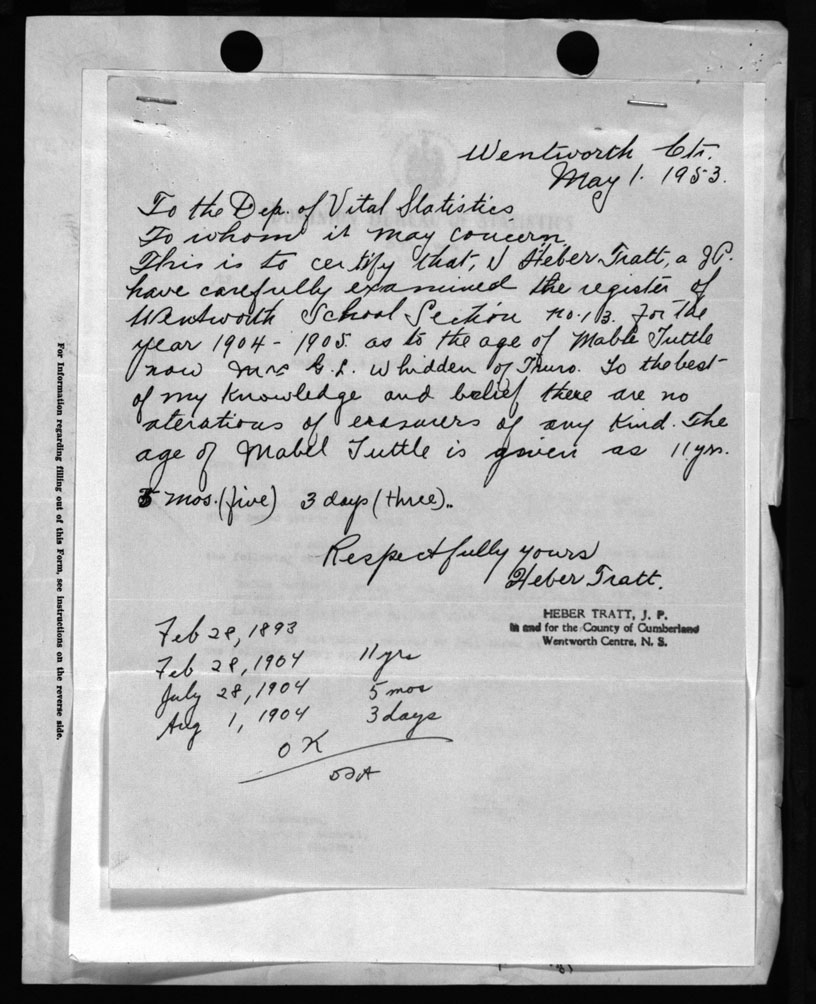 Wentworth Ctr.
May 1. 1953.
To the Dep. of Vital Statistics.
To whom it may concern,
This is to certify that, I Heber Tratt, a J.P.
have carefully examined the register of
Wentworth School Section no. 13. for the
year 1904 - 1905. as to the age of Mable Tuttle
now Mrs G. L. Whidden of Truro. To the best
of my knowledge and belief there are no
aterations of erasurers of any kind. The
age of Mabel Tuttle is given as 11 yrs.
5 mos. (five) 3 days (three)..
Respectfully yours
Heber Tratt.
HEBER TRATT, J. P.
In and for the County of Cumberland
Wentworth Centre, N. S.
Feb 28, 1893
Feb 28, 1904 11 yrs
July 28, 1904 5 mos
Aug 1, 1904 3 days
OK
For Information regarding filling out of this Form, see instructions on the reverse side.